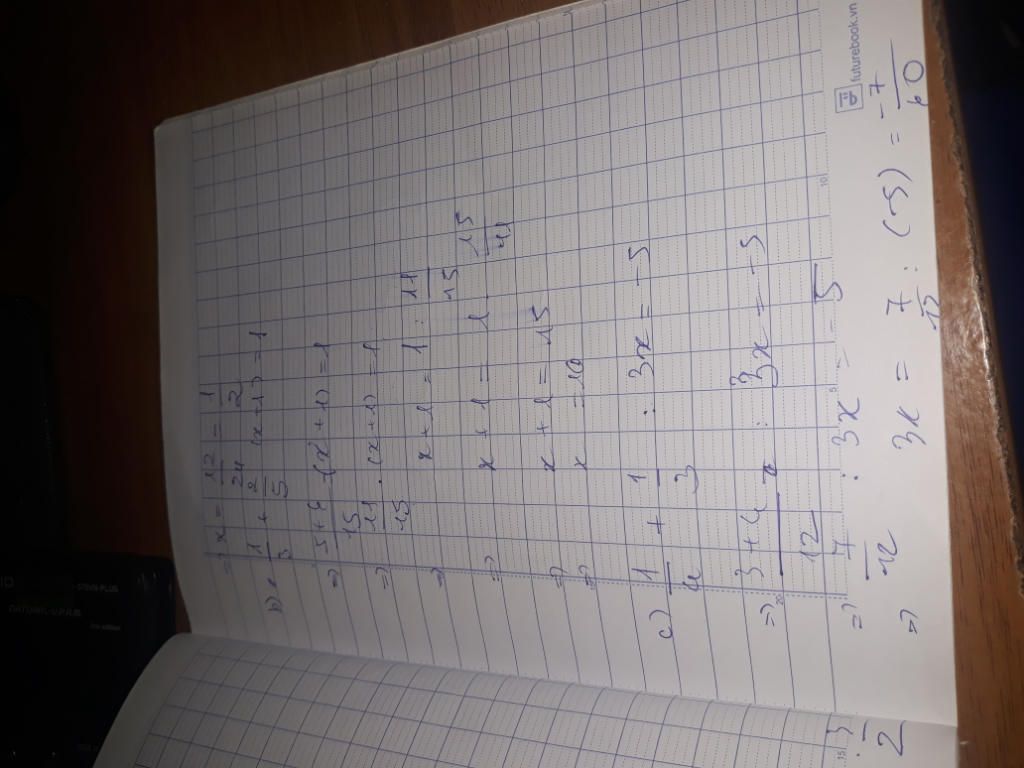 => x = 12/24 = 1/2
b) 1/3 + 2/5 (x+1) = 1
=> 5+6/15 (x+1) = 1
=> 11/15 . (x+1) = 1
=> x+1 = 1 : 11/15
=> x+1 = 1 . 15/11
=> x+1 = 15
=> x = 10
c) 1/4 + 1/3 : 3x = -5
=> 3+4/12 : 3x = -5
=> 7/12 : 3x = -5
=> 3x = 7/12 : (-5) = -7/60
futurebook.vn